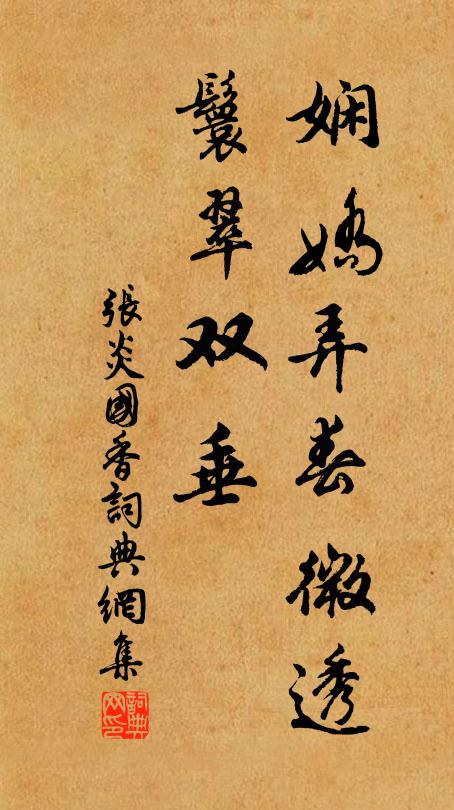 娴嬌弄春微透
鬟翠双垂
張炎國香詞典網集
詞典网印